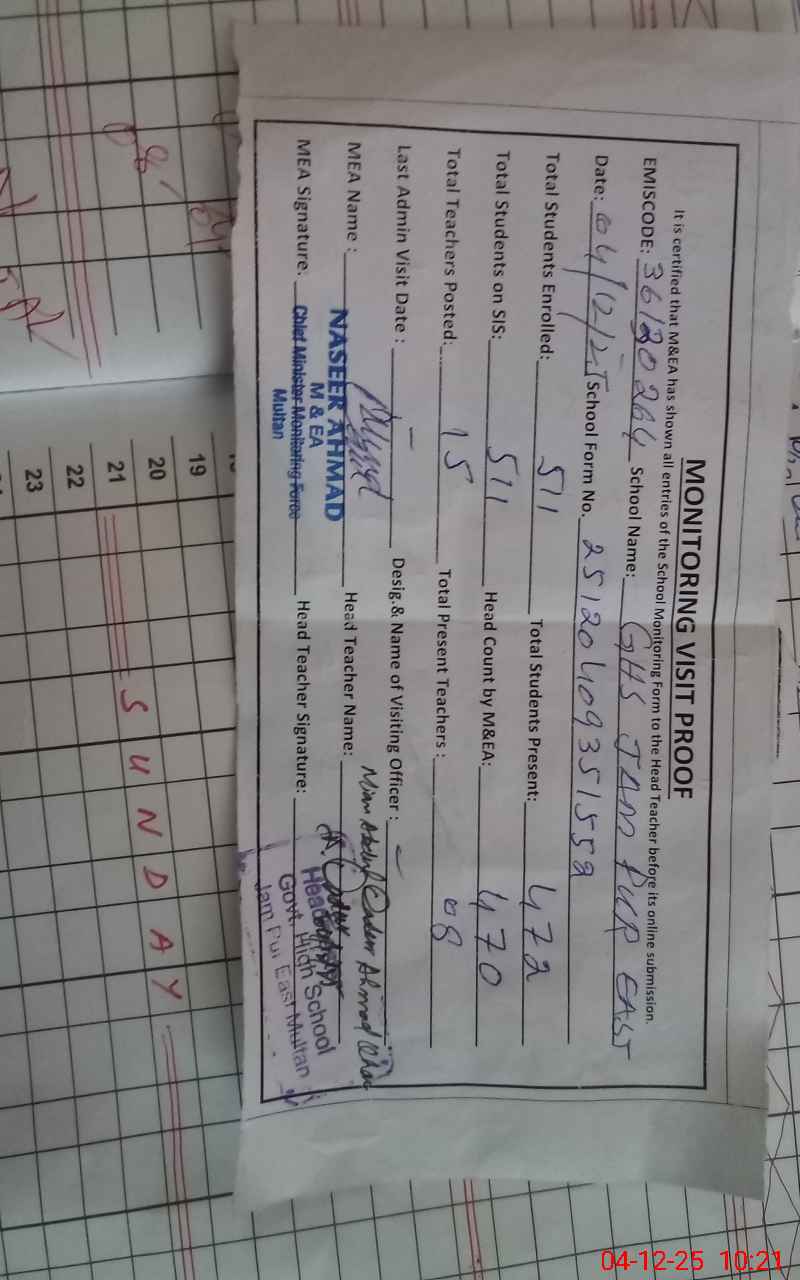 MONITORING VISIT PROOF
It is certified that M&EA has shown all entries of the School Monitoring Form to the Head Teacher before its online submission.
EMISCODE: 36120264 School Name: GHS JAM PUR EAST
Date: 04/12/25 School Form No. 25120409351559
Total Students Enrolled: 511 Total Students Present: 472
Total Students on SIS: 511 Head Count by M&EA: 470
Total Teachers Posted: 15 Total Present Teachers : 08
Last Admin Visit Date : — Desig.& Name of Visiting Officer : —
MEA Name : Head Teacher Name: Mian Abdul Qadeer Ahmad Khan
NASEER AHMAD
M & EA
MEA Signature: Chief Minister Monitoring Force Head Teacher Signature:
Multan
Govt. High School
Jam Pur East Multan
19
20
21 SUNDAY
22
23
04-12-25 10:21